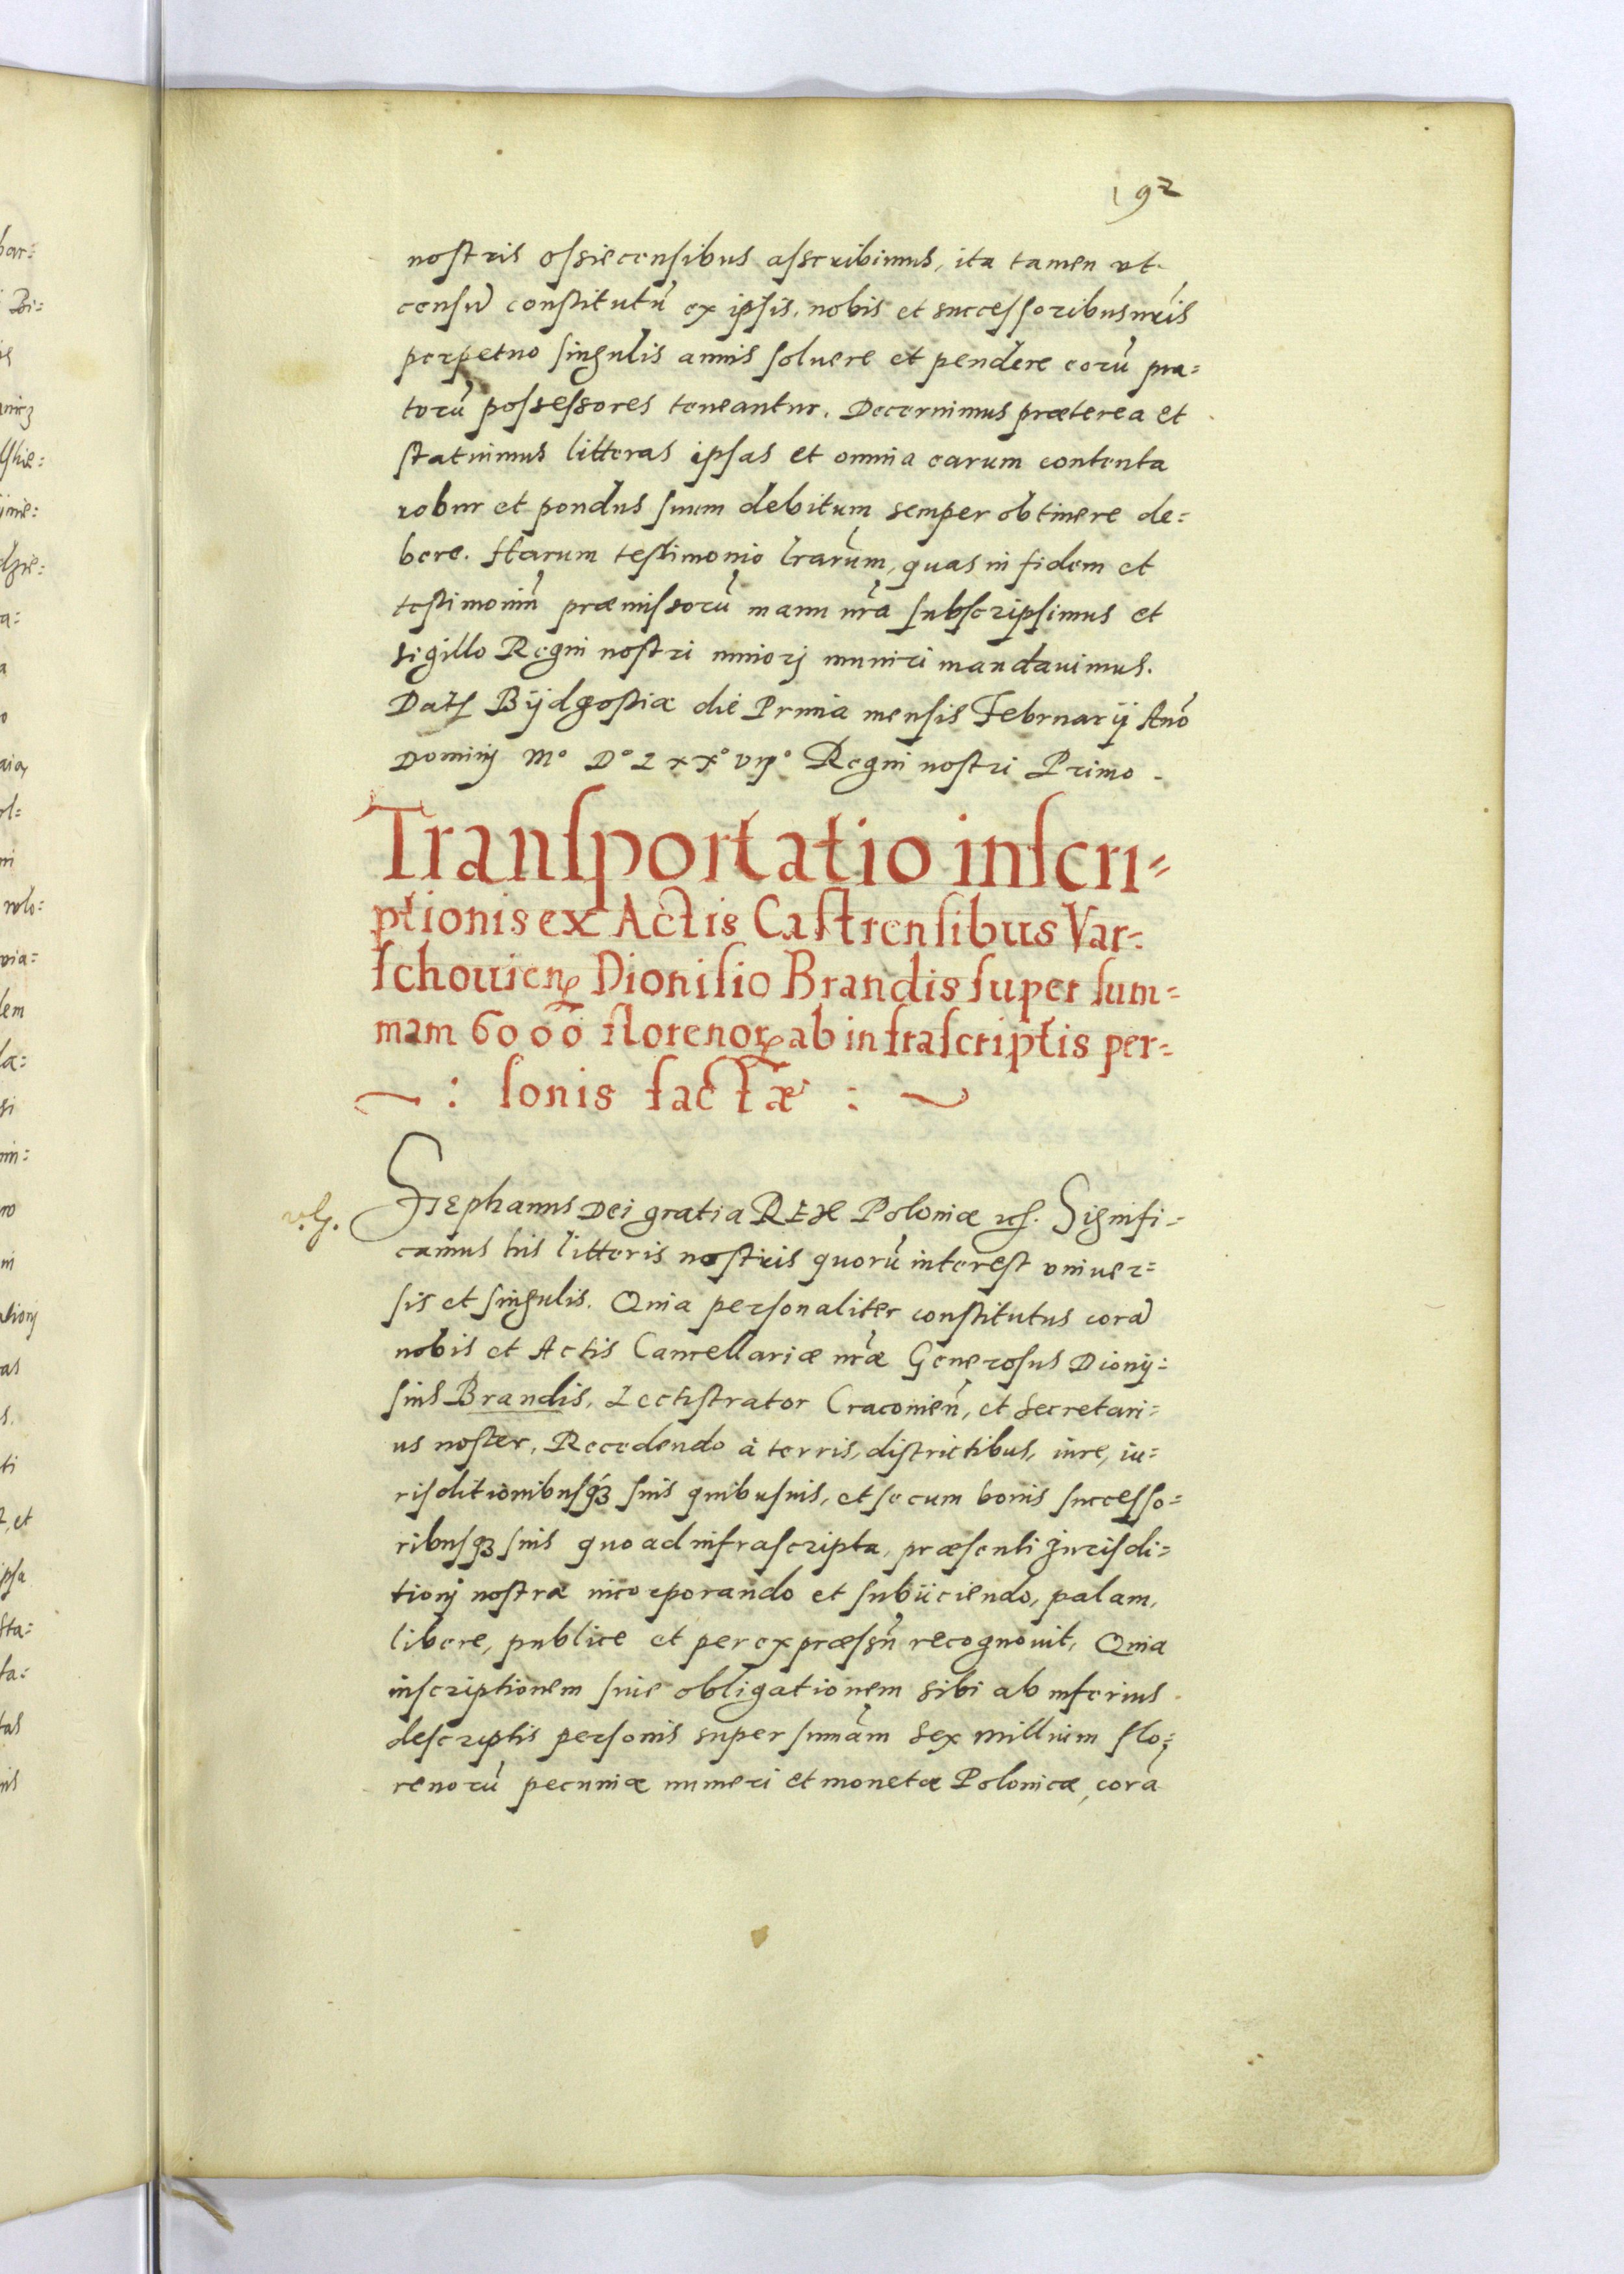 192
nostris Ossiecensibus asscribimus, ita tamen vt
censū constitutū ex ipsis, nobis et successoribus nr̄is
perpetuo singulis annis soluere et pendere eorū pra=
torū possessores teneantur. Decernimus præterea et
statuimus litteras ipsas et omnia earum contenta
robur et pondus suum debitum semper obtinere de=
bere. Harum testimonio lrarūm, quas in fidem et
testimoniū præmissorū manu nr̄a subscripsimus et
sigillo Regni nostri minorj muniri mandauimus.
Dat̄ Bÿdgostiæ die Prima mensis Februarij Anō
Dominj Mº Dº Lxxº vijº Regni nostri Primo.
Transportatio inscri=
ptionis ex Actis Castrensibus Var=
schouien̄ Dionisio Brandis super sum=
mam 6000 florenorꝝ ab infrascriptis per=
~ : sonis factæ : ~
v.g.
Stephanus Dei gratia REX Poloniæ etc. Signifi=
camus his litteris nostris quorū interest vniuer=
sis et singulis. Quia personaliter constitutus corā
nobis et Actis Cancellariæ nr̄æ Generosus Dionij=
sius Brandis, Lectistrator Cracouien̄, et Secretari=
us noster, Recedendo à terris, districtibus, iure, iu=
risditionibusqꝫ suis quibusuis, et se cum bonis successo=
ribusqꝫ suis quo ad infrascripta, præsenti Jurisdi=
tionj nostræ incorporando et subijciendo, palam,
libere, publice et per expræssū recognouit, Quia
inscriptionem siue obligationem sibi ab inferius
descriptis personis super sum̄am sex millium flo=
renorū pecuniæ numeri et monetæ Polonicæ, corā